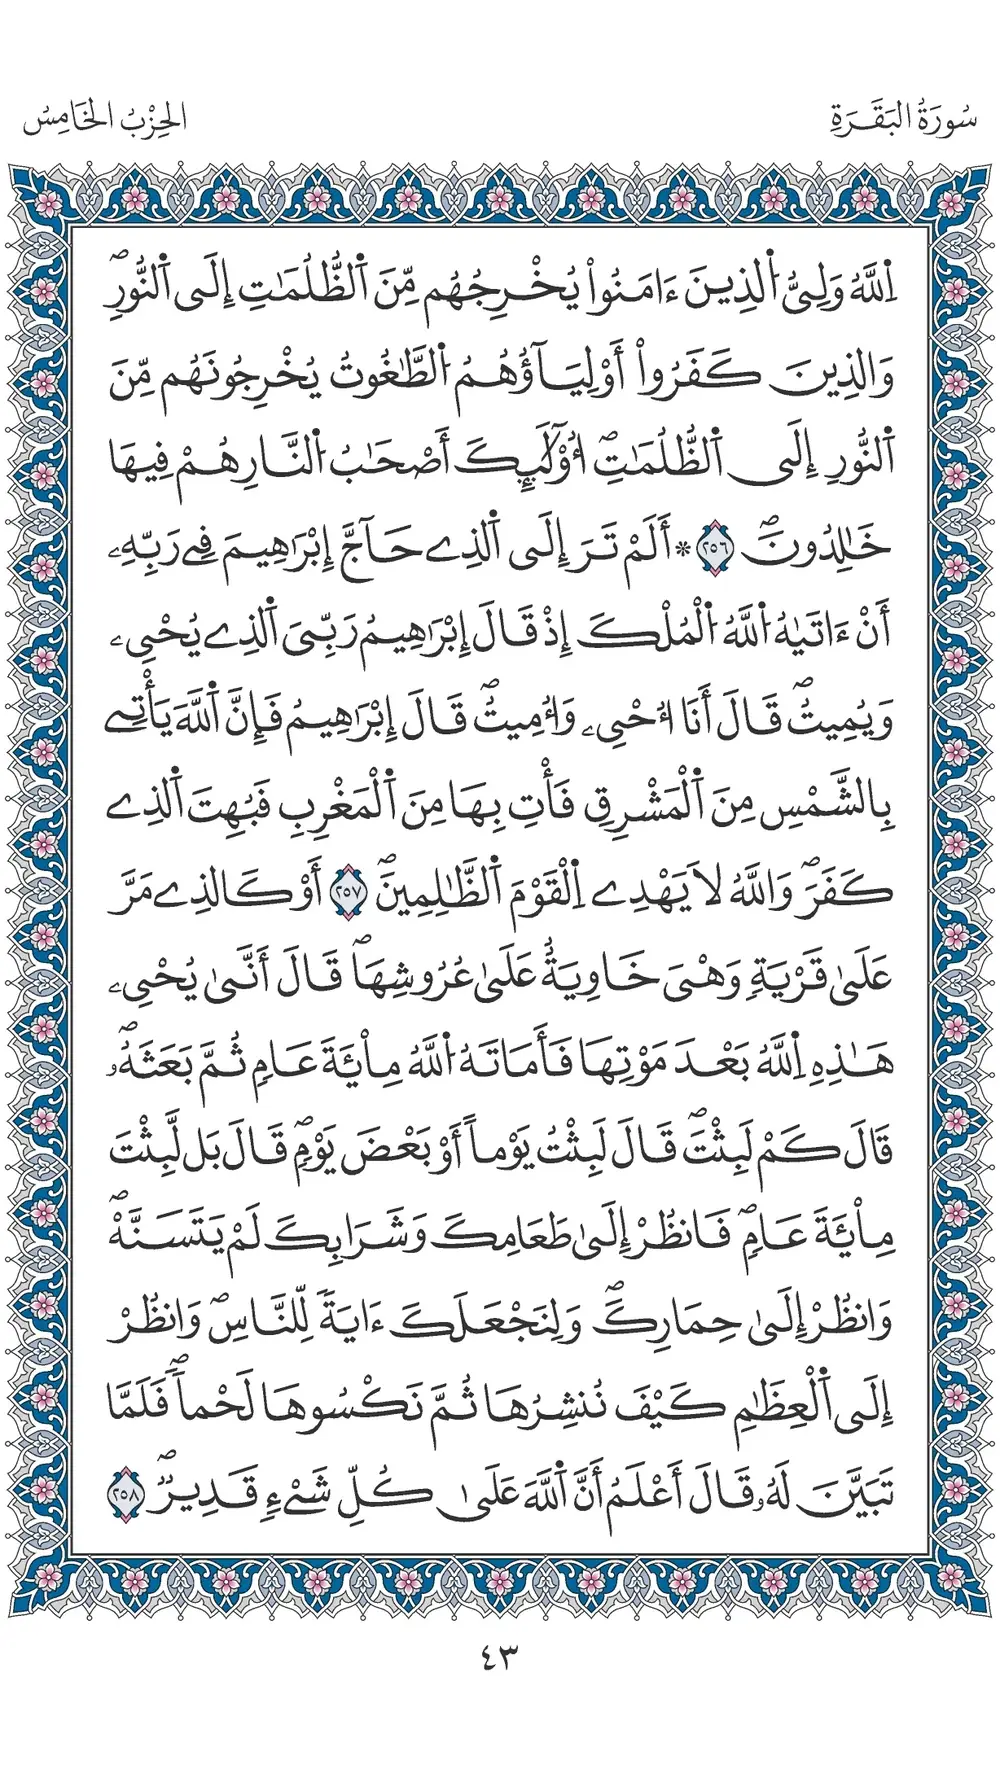 سُورَةُ البَقَرَةِ
الحِزْبُ الخَامِسُ
اَ۬للَّهُ وَلِيُّ اُ۬لذِينَ ءَامَنُواْ يُخْرِجُهُم مِّنَ اَ۬لظُّلُمَٰتِ إِلَى اَ۬لنُّورِۖ
وَالذِينَ كَفَرُواْ أَوْلِيَآؤُهُمُ اُ۬لطَّٰغُوتُ يُخْرِجُونَهُم مِّنَ
اَ۬لنُّورِ إِلَى اَ۬لظُّلُمَٰتِۖ أُوْلَٰٓئِكَ أَصْحَٰبُ اُ۬لنَّارِ هُمْ فِيهَا
خَٰلِدُونَۖ ٢٥٦ * أَلَمْ تَرَ إِلَى اَ۬لذِے حَآجَّ إِبْرَٰهِيمَ فِے رَبِّهِۦ
أَنْ ءَاتَيٰهُ اُ۬للَّهُ اُ۬لْمُلْكَ إِذْ قَالَ إِبْرَٰهِيمُ رَبِّيَ اَ۬لذِے يُحْيِۦ
وَيُمِيتُۖ قَالَ أَنَا أُحْيِۦ وَأُمِيتُۖ قَالَ إِبْرَٰهِيمُ فَإِنَّ اَ۬للَّهَ يَأْتِے
بِالشَّمْسِ مِنَ اَ۬لْمَشْرِقِ فَأْتِ بِهَا مِنَ اَ۬لْمَغْرِبِ فَبُهِتَ اَ۬لذِے
كَفَرَۖ وَاللَّهُ لَا يَهْدِے اِ۬لْقَوْمَ اَ۬لظَّٰلِمِينَۖ ٢٥٧ أَوْ كَالذِے مَرَّ
عَلَىٰ قَرْيَةٖ وَهْيَ خَاوِيَةٌ عَلَىٰ عُرُوشِهَاۖ قَالَ أَنَّىٰ يُحْيِۦ
هَٰذِهِ اِ۬للَّهُ بَعْدَ مَوْتِهَا فَأَمَاتَهُ اُ۬للَّهُ مِاْئَةَ عَامٖ ثُمَّ بَعَثَهُۥۖ
قَالَ كَمْ لَبِثْتَۖ قَالَ لَبِثْتُ يَوْماً أَوْ بَعْضَ يَوْمٖۖ قَالَ بَل لَّبِثْتَ
مِاْئَةَ عَامٖۖ فَانظُرْ إِلَىٰ طَعَامِكَ وَشَرَابِكَ لَمْ يَتَسَنَّهْۖ
وَانظُرْ إِلَىٰ حِمَارِكَۖ وَلِنَجْعَلَكَ ءَايَةٗ لِّلنَّاسِۖ وَانظُرْ
إِلَى اَ۬لْعِظَٰمِ كَيْفَ نُنشِرُهَا ثُمَّ نَكْسُوهَا لَحْماٗۖ فَلَمَّا
تَبَيَّنَ لَهُۥ قَالَ أَعْلَمُ أَنَّ اَ۬للَّهَ عَلَىٰ كُلِّ شَےْءٖ قَدِيرٞۖ ٢٥٨
٤٣